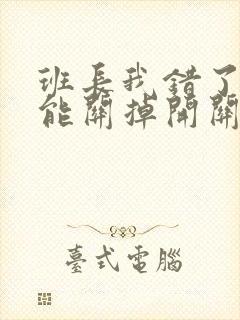 班長我錯了
能關掉開關
臺式電腦